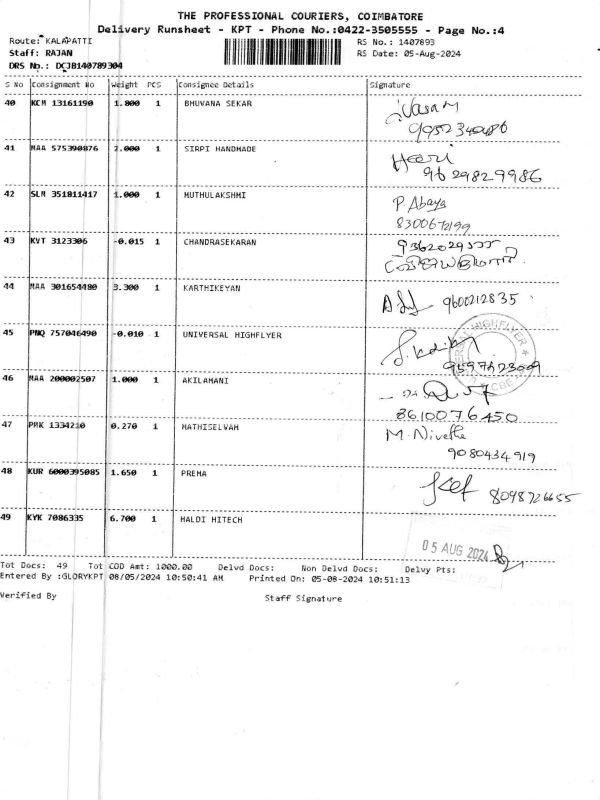 THE PROFESSIONAL COURIERS, COIMBATORE
Delivery Runsheet - KPT - Phone No.:0422-3505555 - Page No.:4
Route: KALAPATTI RS No.: 1407893
Staff: RAJAN RS Date: 05-Aug-2024
DRS No.: DCJB140789304
S No Consignment No Weight PCS Consignee Details Signature
40 KCM 13161190 1.800 1 BHUVANA SEKAR
41 MAA 575390876 2.000 1 SIRPI HANDMADE
9629829986
42 SLM 351811417 1.000 1 MUTHULAKSHMI P. Abaya
8300672199
43 KVT 3123306 -0.015 1 CHANDRASEKARAN
44 MAA 301654480 3.300 1 KARTHIKEYAN 9600212835
45 PNQ 757046490 -0.010 1 UNIVERSAL HIGHFLYER
46 MAA 200002507 1.000 1 AKILAMANI
8610076450
47 PMK 1334210 0.270 1 MATHISELVAM M. Nivetha
9080434919
48 KUR 6000395085 1.650 1 PREMA
8098726655
49 KYK 7086335 6.700 1 HALDI HITECH
05 AUG 2024
Tot Docs: 49 Tot COD Amt: 1000.00 Delvd Docs: Non Delvd Docs: Delvy Pts:
Entered By :GLORYKPT 08/05/2024 10:50:41 AM Printed On: 05-08-2024 10:51:13
Verified By Staff Signature